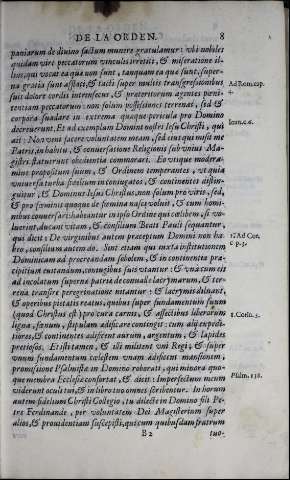 DE LA ORDEN. 8
paniarum de diuino factum munere gratulamur: vbi nobiles
quidam viri peccatorum vinculis irretiti, & miseratione il-
lius, qui vocat ea quæ non sunt, tanquam ea quæ sunt, super-
na gratia sunt afflati, & tacti super multis transgressionibus
suis dolore cordis intrinsecus, & præteritorum agentes pœni-
tentiam peccatorum: non solum possessiones terrenas, sed &
corpora suadare in extrema quæque pericula pro Domino
decreuerunt. Et ad exemplum Domini nostri Iesu Christi, qui
ait: Non veni facere voluntatem meam, sed eius qui misit me
Patris, in habitu, & conuersatione Religionis sub vnius Ma-
gistri statuerunt obedientia commorari. Eo vtique modera-
mine propositum suum, & Ordinem temperantes, vt quia
vniuersa turba fidelium in coniugatos, & continentes distin-
guitur, & Dominus Iesus Christus, non solum pro viris, sed,
& pro fœminis quoque de fœmina nasci voluit, & cum homi-
nibus conuersari: habeantur in ipso Ordine qui cælibem, si vo-
luerint, ducant vitam, & consilium Beati Pauli sequantur,
qui dicit: De virginibus autem præceptum Domini non ha-
beo, consilium autem do. Sint etiam qui iuxta institutionem
Dominicam ad procreandam sobolem, & in continentia præ-
cipitium euitandum, coniugibus suis vtantur: & vna cum eis
ad incolatum supernæ patriæ de conualle lacrymarum, & ter-
rena transire peregrinatione nitantur: & lacrymis diluant,
& operibus pietatis reatus, quibus super fundamentum suum
(quod Christus est) pro cura carnis, & affectibus liberorum
ligna, fœnum, stipulam ædificare contingit: cum alij expedi-
tiores, & continentes ædificent aurum, argentum, & lapides
pretiosos. Et isti tamen, & illi militent vni Regi, & super
vnum fundamentum cælestem vnam ædificent mansionem,
promissione Psalmistæ in Domino roborati, qui minora quo-
que membra Ecclesiæ confortat, & dicit: Imperfectum meum
viderunt oculi tui, & in libro tuo omnes scribentur. In horum
autem fidelium Christi Collegio, tu dilecte in Domino fili Pe-
tre Ferdinande, per voluntatem Dei Magisterium super
alios, & prouidentiam suscepisti, qui cum quibusdam fratrum
B 2 tuo-
Ad Rom. cap.
4.
Ioan. c. 6.
1. Ad Cor.
c. p. 7.
1. Corin. 3.
Psalm. 138.